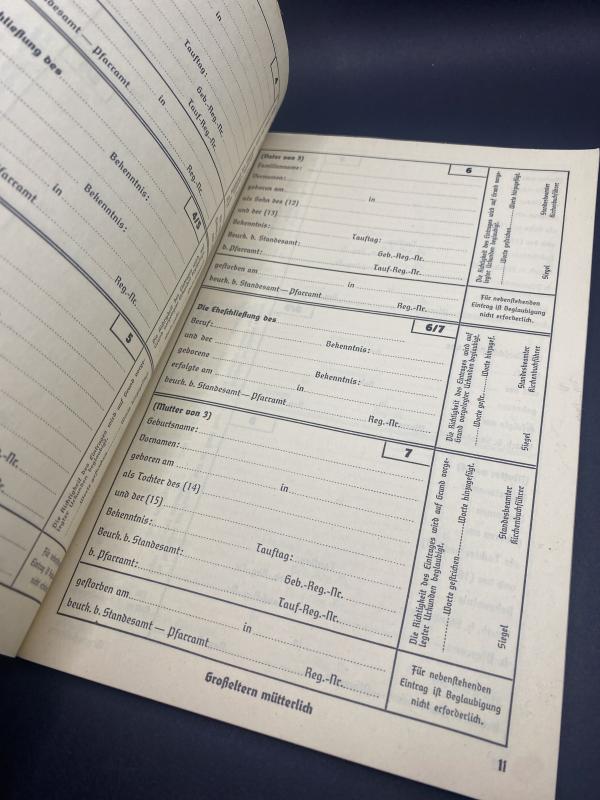 in
Tauftag:
Geb.-Reg.-Nr.
Tauf-Reg.-Nr.
desamt — Pfarramt
in
Reg.-Nr.
4
hließung des
Bekenntnis:
in
Bekenntnis:
farramt
Reg.-Nr.
4/5
5
(Vater von 3)
6
Familienname:
Vornamen:
geboren am
in
als Sohn des (12)
und der (13)
Bekenntnis:
Tauftag:
Beurk. b. Standesamt:
Geb.-Reg.-Nr.
b. Pfarramt:
Tauf-Reg.-Nr.
gestorben am
in
beurk. b. Standesamt — Pfarramt
Reg.-Nr.
Die Richtigkeit des Eintrages wird auf Grund vorge-
legter Urkunden beglaubigt.
Worte gestrichen. Worte hinzugefügt.
Siegel
Standesbeamter
Kirchenbuchführer
Für nebenstehenden
Eintrag ist Beglaubigung
nicht erforderlich.
Die Eheschließung des
6/7
Beruf:
Bekenntnis:
und der
geborene
Bekenntnis:
erfolgte am
in
beurk. b. Standesamt — Pfarramt
Reg.-Nr.
Die Richtigkeit des Eintrages wird auf
Grund vorgelegter Urkunden beglaubigt.
Worte gestr. Worte hinzugef.
Siegel
Standesbeamter
Kirchenbuchführer
(Mutter von 3)
7
Geburtsname:
Vornamen:
geboren am
in
als Tochter des (14)
und der (15)
Bekenntnis:
Tauftag:
Beurk. b. Standesamt:
Geb.-Reg.-Nr.
b. Pfarramt:
Tauf-Reg.-Nr.
gestorben am
in
beurk. b. Standesamt — Pfarramt
Reg.-Nr.
Die Richtigkeit des Eintrages wird auf Grund vorge-
legter Urkunden beglaubigt.
Worte gestrichen. Worte hinzugefügt.
Siegel
Standesbeamter
Kirchenbuchführer
Für nebenstehenden
Eintrag ist Beglaubigung
nicht erforderlich.
Großeltern mütterlich
11